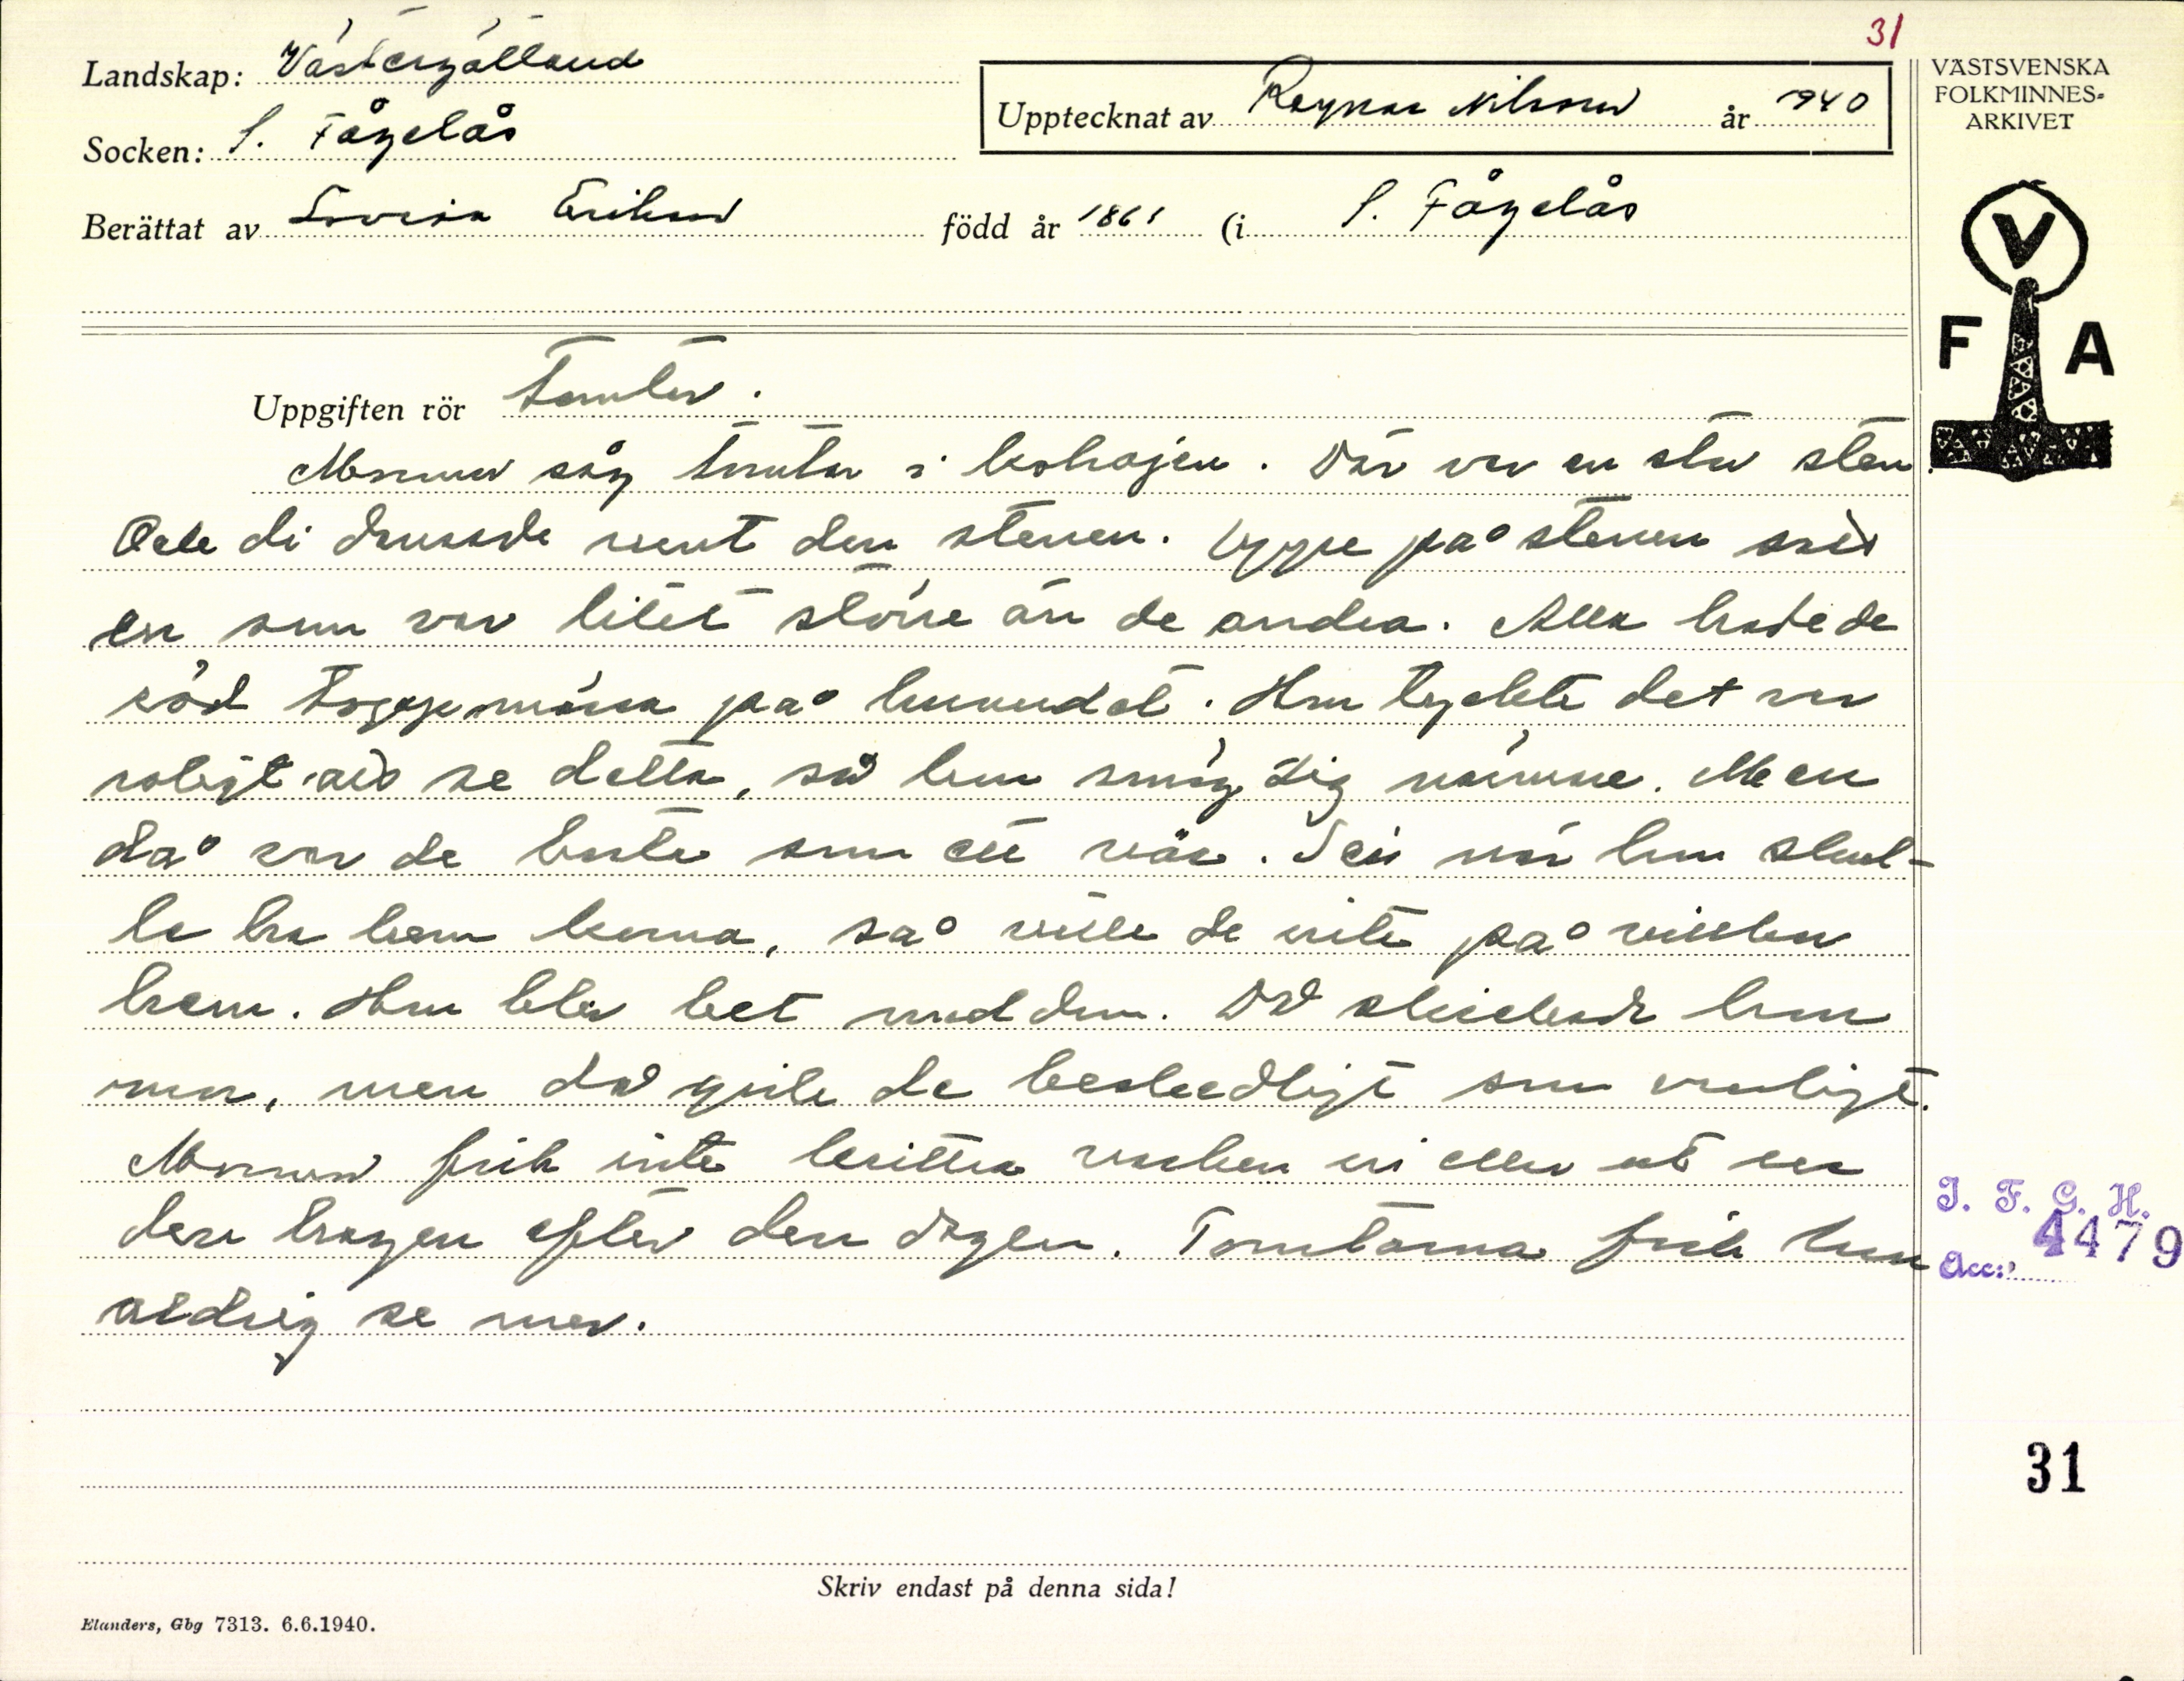 31
Landskap: Västergötland
Socken: S. Fågelås
Upptecknat av Ragnar Nilsson år 1940
Berättat av Lovisa Erikson född år 1861 (i S. Fågelås
VÄSTSVENSKA
FOLKMINNES=
ARKIVET
V
F A
Uppgiften rör Tomten.
Mormor såg tomtar i kohajen. Där var en stor sten
Ock di dansade runt den stenen. Uppe på stenen
en som var litet större än de andra. Alla hadede
röd toppmössa på huvudet. Hon tyckte det var
roligt att se detta, så hon smög sig närmre. Men
då var de borta som ett väs. Sen när hon skul-
le ha hem korna, så ville de inte på villkor
hem. Hon blev het med dem. Då skickade hon
mor, men då gick de beskedligt som vanligt.
Mormor fick inte hritta varken in eller ut ur
den hagen efter den dagen. Tomtarna fick hon
aldrig se mer.
I. F. G. H.
Acc: 4479
31
Skriv endast på denna sida!
Elanders, Gbg 7313. 6.6.1940.